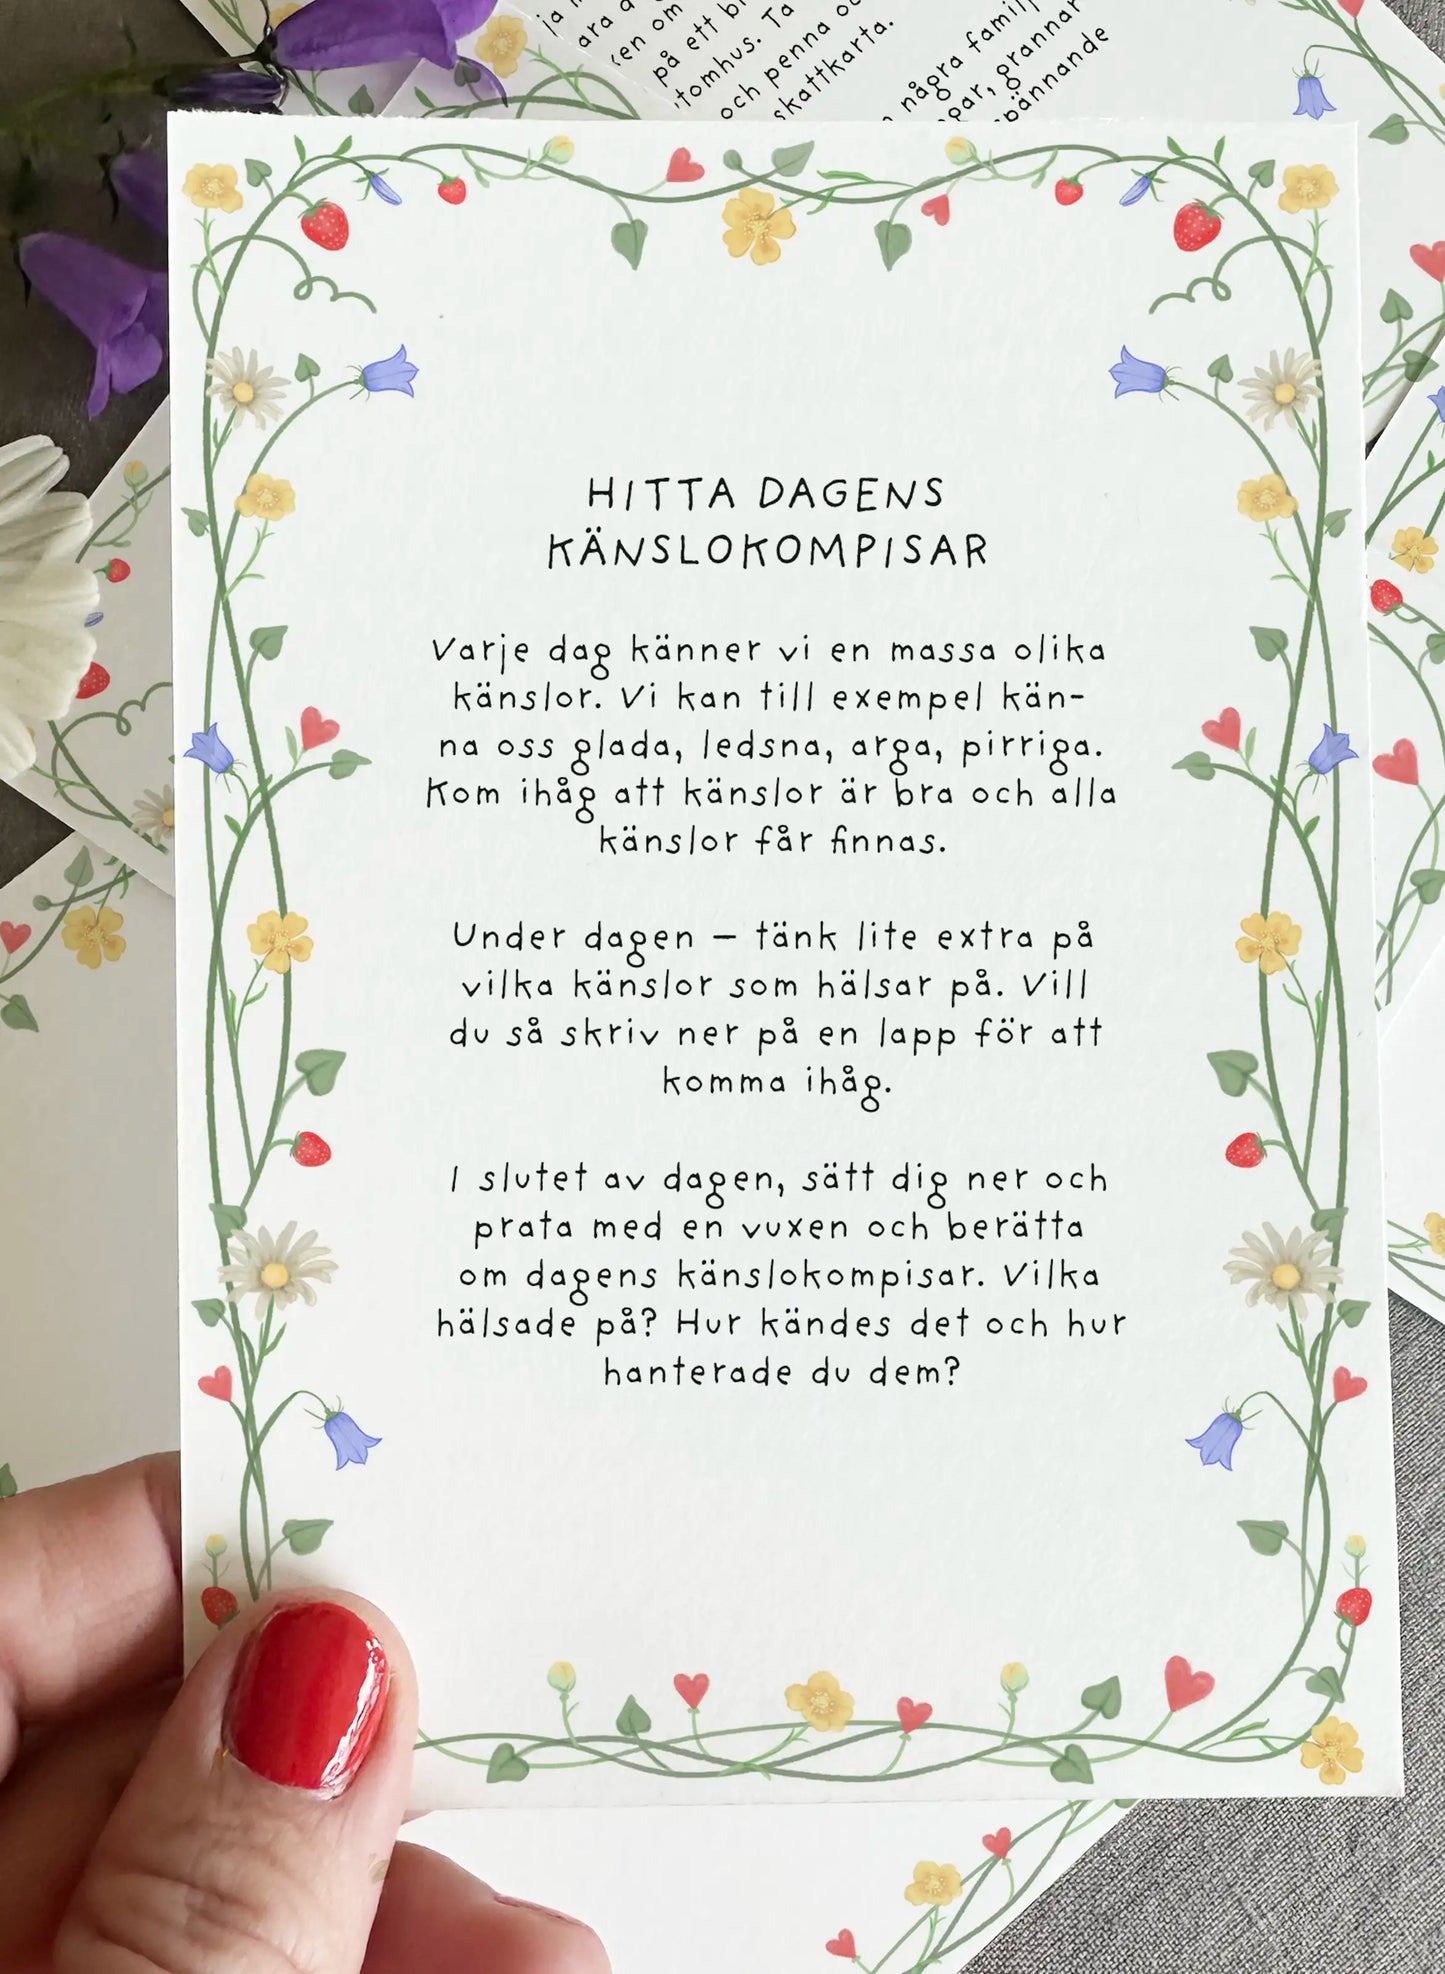 på ett
tomhus. Ta
och penna
skattkarta.
några
grannar
spännande
HITTA DAGENS
KÄNSLOKOMPISAR
Varje dag känner vi en massa olika
känslor. Vi kan till exempel kän-
na oss glada, ledsna, arga, pirriga.
Kom ihåg att känslor är bra och alla
känslor får finnas.
Under dagen – tänk lite extra på
vilka känslor som hälsar på. Vill
du så skriv ner på en lapp för att
komma ihåg.
I slutet av dagen, sätt dig ner och
prata med en vuxen och berätta
om dagens känslokompisar. Vilka
hälsade på? Hur kändes det och hur
hanterade du dem?